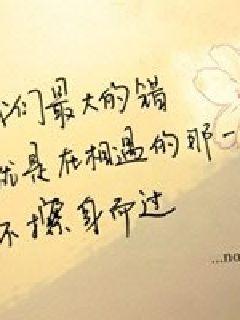 们最大的错
就是在相遇的那一
不擦身而过
...no